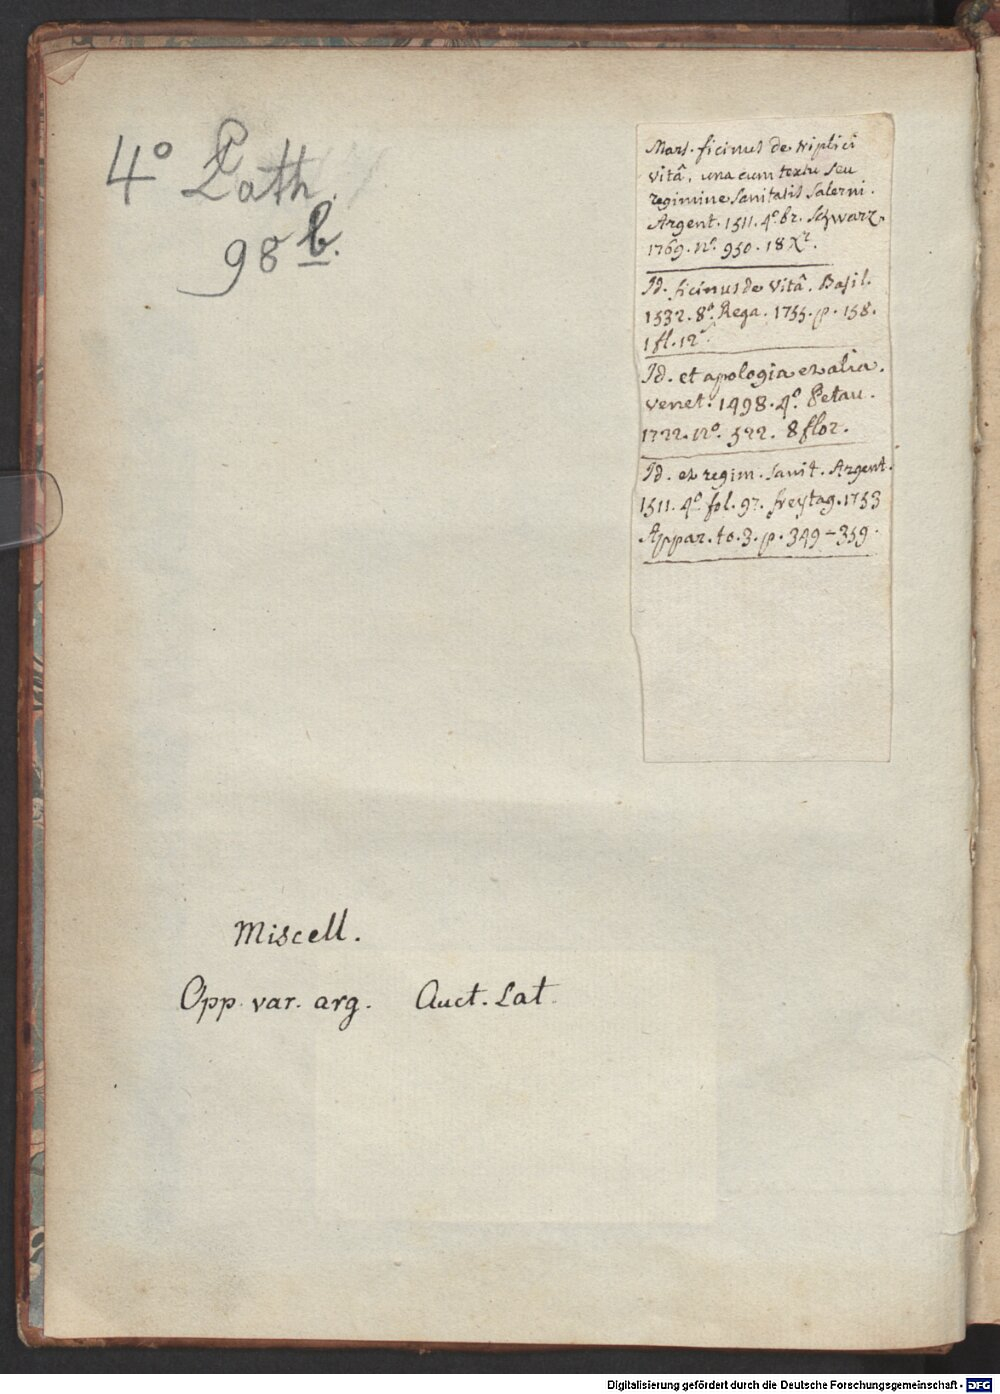 4º Path.
98 b.
Mars. ficinus de triplici
vitâ, una cum textu seu
regimine Sanitatis Salerni.
Argent. 1511. 4º br. Schwarz.
1769. nº. 950. 18 Xr.
Id. ficinus de Vitâ. Basil.
1532. 8º. Rega. 1755. p. 158.
1 fl. 12
Id. et apologia et alia.
venet. 1498. 4º. Petau.
1722. nº. 522. 8 flor.
Id. et regim. Sanit. Argent.
1511. 4º fol. 97. freytag. 1753
Appar. to. 3. p. 349-359.
Miscell.
Opp. var. arg. Auct. Lat.
Digitalisierung gefördert durch die Deutsche Forschungsgemeinschaft - DFG